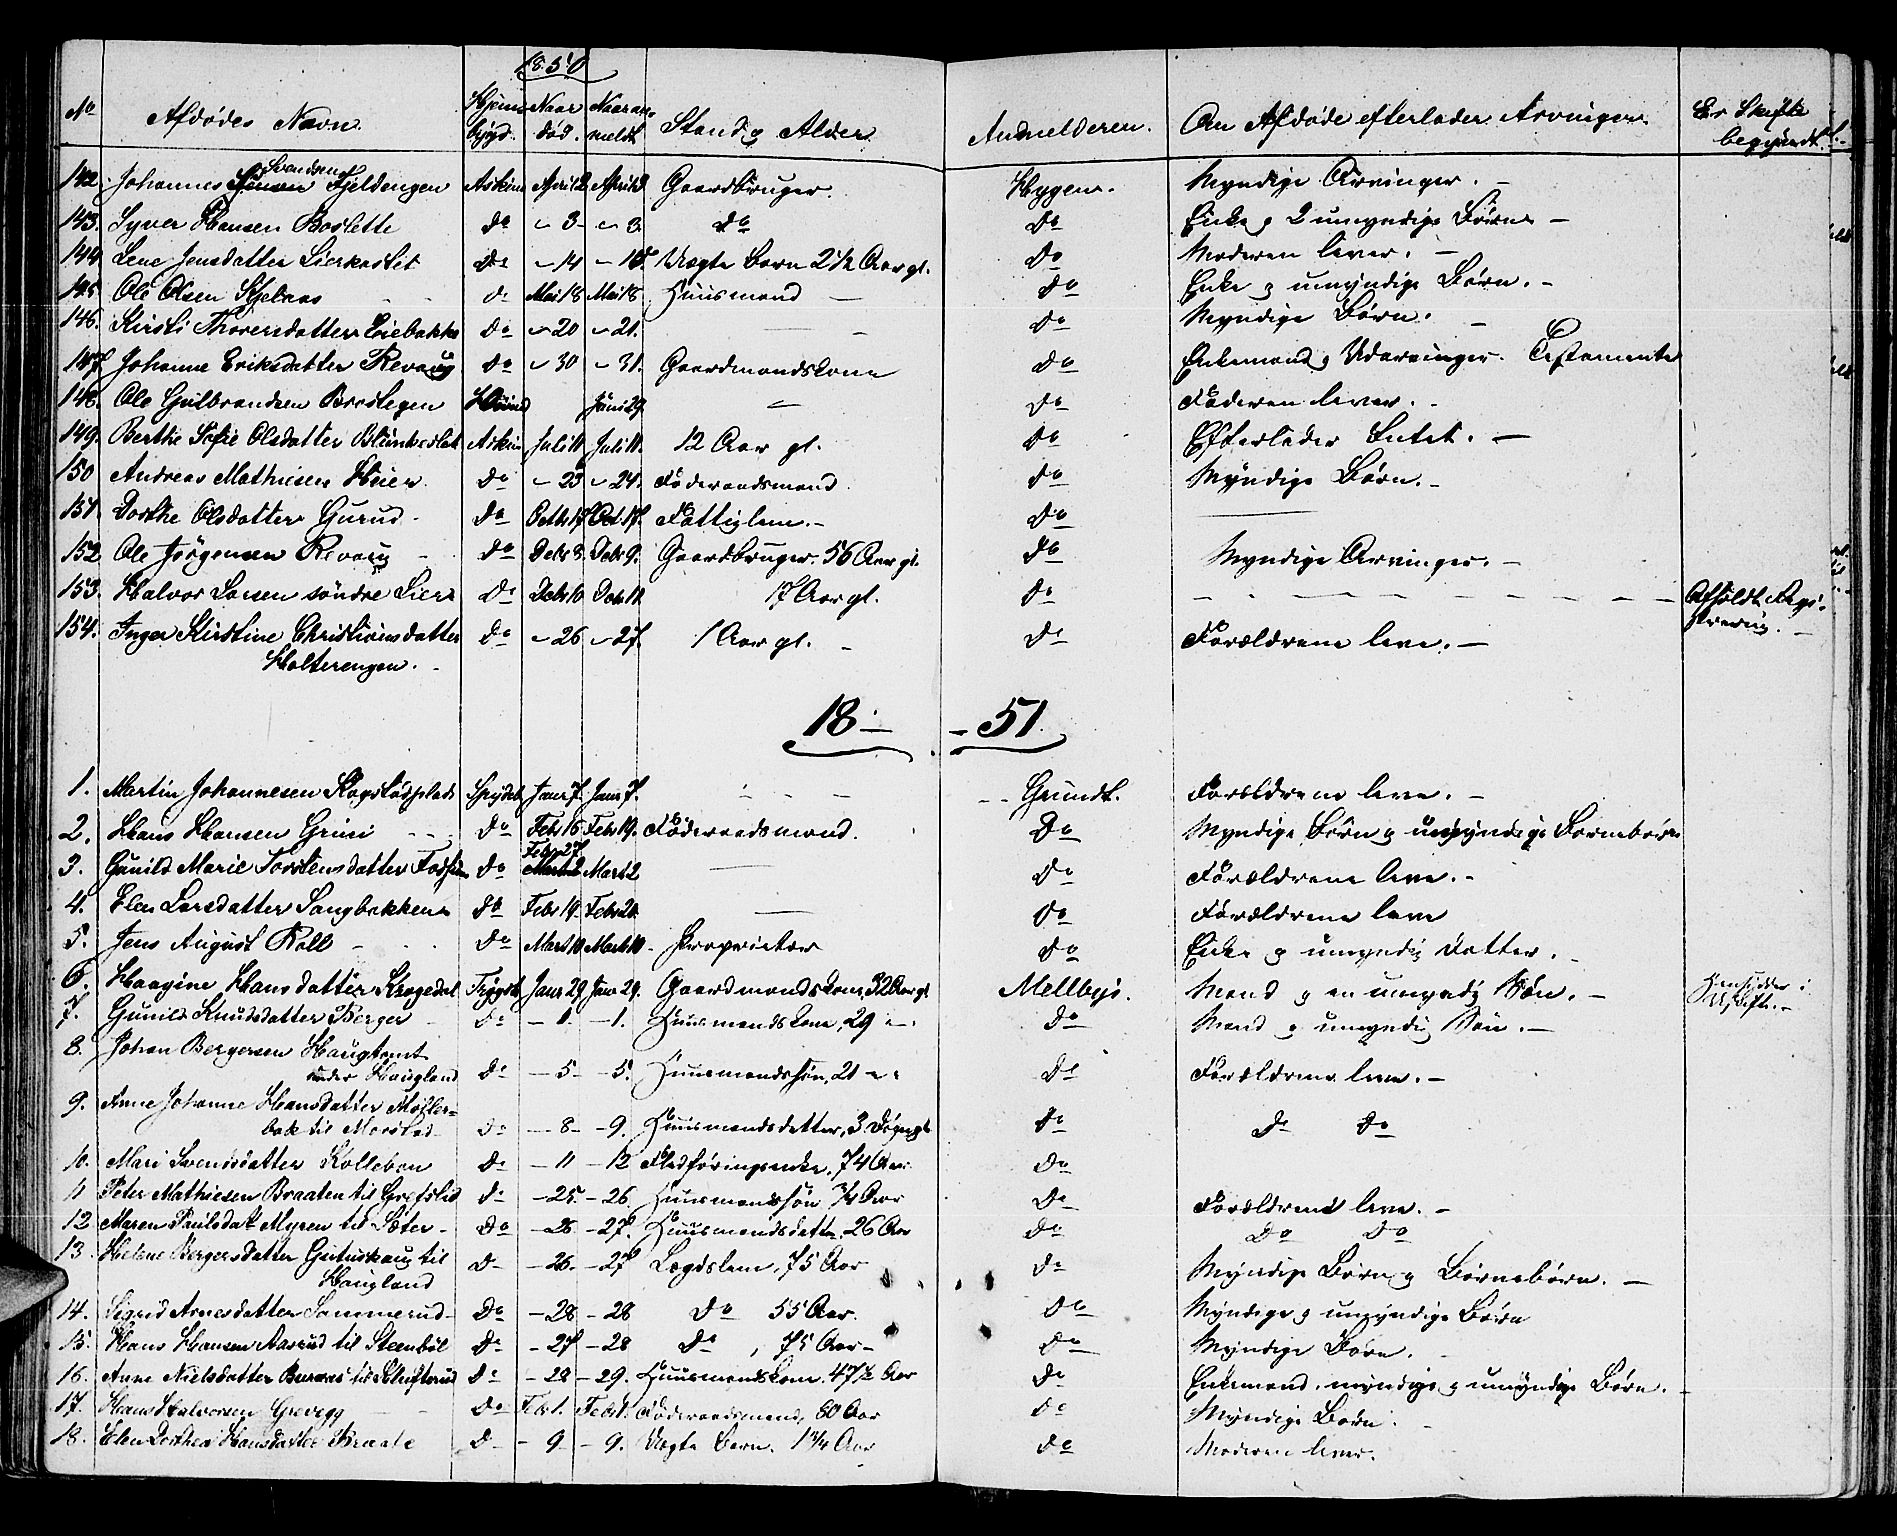 1850
No Afdødes Navn. Hjem- Naar Naar an- Stand og Alder Anmelderen. Om Afdøde efterlader Arvinger. Er Skifte
bøjgd. død. meldt begyndt.
142. Johannes Svendsen Fjeldengen Askim April 2 April 3 Gaardbruger. Hygen. Myndige Arvinger. -
143. Syver Hansen Boslette do - 3 - 3 do do Enke og 2 umyndige Börn -
144. Lene Jensdatter Lierkastet do - 14 - 15 Uægte Barn 2 1/2 Aar gl. do Moderen lever. -
145. Ole Olsen Skjelaas d- Mai 18 Mai 18 Huusmand - do Enke og umyndige Börn. -
146. Kirsti Thorersdatter Eiebakke do - 20 - 21. - do Myndige Börn. -
147. Johanne Eriksdatter Revoug do - 30 - 31. Gaardmandskone do Enkemand og Udarvinger. Testamente
148. Ole Gulbrandsen Brostegen Juni 29 - do Faderen lever. -
149. Berthe Sofie Olsdatter Askim Juli 11 Juli 11. 12 Aar gl. do Efterlader Intet. -
150 Andreas Mathiesen Heier do - 23 - 24. Föderaadsmand. do Myndige Börn. -
151. Dorthe Olsdatter Gurud - do Octbr 17 Oct. 17. Fattiglem. - do
152 Ole Jörgensen Revoug - do Debr 8. Debr 9. Gaardbruger. 56 Aar gl. do Myndige Arvinger. -
153. Halvor Larsen söndre Lier do Debr 10 Debr 11 17 Aar gl. do - - - - Afholdt Regi-
strering. -
154. Inger Kirstine Christiansdatter do - 26 - 27. 1 Aar gl. - do Forældrene leve. -
Holterengen. -
18 - - 51.
1. Martin Johannesen Skogstadplads Spydeb. Janr 7. Janr 7. - - - Grundt. Forældrene leve. -
2. Hans Hansen Griisi do Febr 16 Febr 19. Föderaadsmand. do Myndige Börn og umyndige Börnebörn
Febr 27
3. Gunild Marie Torstensdatter do Marts 2 Marts 2 - do Forældrene leve. -
4. Elen Larsdatter Sangbakken do Febr 19. Febr 20. - do Forældrene leve
5. Jens August Roll - do Marts 10 Marts 10 - Proprietær do Enke og umyndig Datter. -
6. Haagine Hansdatter Krogedal Trygst. Janr 29 Janr 29. Gaardmandskone, 32 Aar gl. Mellbye. Mand og en umyndig Sön. - Hensidder i
Uskifte. -
7. Gunild Knudsdatter Berger - do - 1. - 1. Huusmandskone, 29 - . do Mand og umyndig Sön. -
8. Johan Bergersen Haugtomt
under Haugland do - 5 - 5. Huusmandssön, 21 - . do Forældrene leve. -
9. Anne Johanne Hansdatter Möller-
bak til Morstad do - 8 - 9. Huusmandsdatter, 3 Dögn gl do do do
10. Mari Svendsdatter Kollebon do - 11 - 12 Fledföringsenke, 74 Aar. do
11 Peter Mathiesen Braaten til Grefslie do - 25. - 26. Huusmandssön 3/4 Aar do Forældrene leve. -
12 Maren Paulsdatt Myren til Sæter - do - 26 - 27. Huusmandsdatter. 26 Aar do do do
13. Helene Bergersdatter Gutuskaug til d- - 26. - 27 Lægdslem, 75 Aar do Myndige Börn og Börnebörn. -
Haugland
14. Sigrid Arnesdatter Sommerud - do - 28 - 28 do 55 Aar. do Myndige og umyndige Börn
15. Hans Hansen Aasrud til Steenböl do - 27 - 28 do , 75 Aar - do Myndige Börn. -
16. Anne Nielsdatter til do - 28 - 29. Huusmandskone. 47 1/2 Aar do Enkemand. myndige og umyndige Börn. -
17. Hans Halvorsen Grevegg do Febr 1. Febr 1. Föderaadsmand, 80 Aar do Myndige Börn. -
18. Elen Dorthea Hansdatter Braate d- - 9 - 9. Uægte Barn. 1 3/4 Aar do Moderen lever.